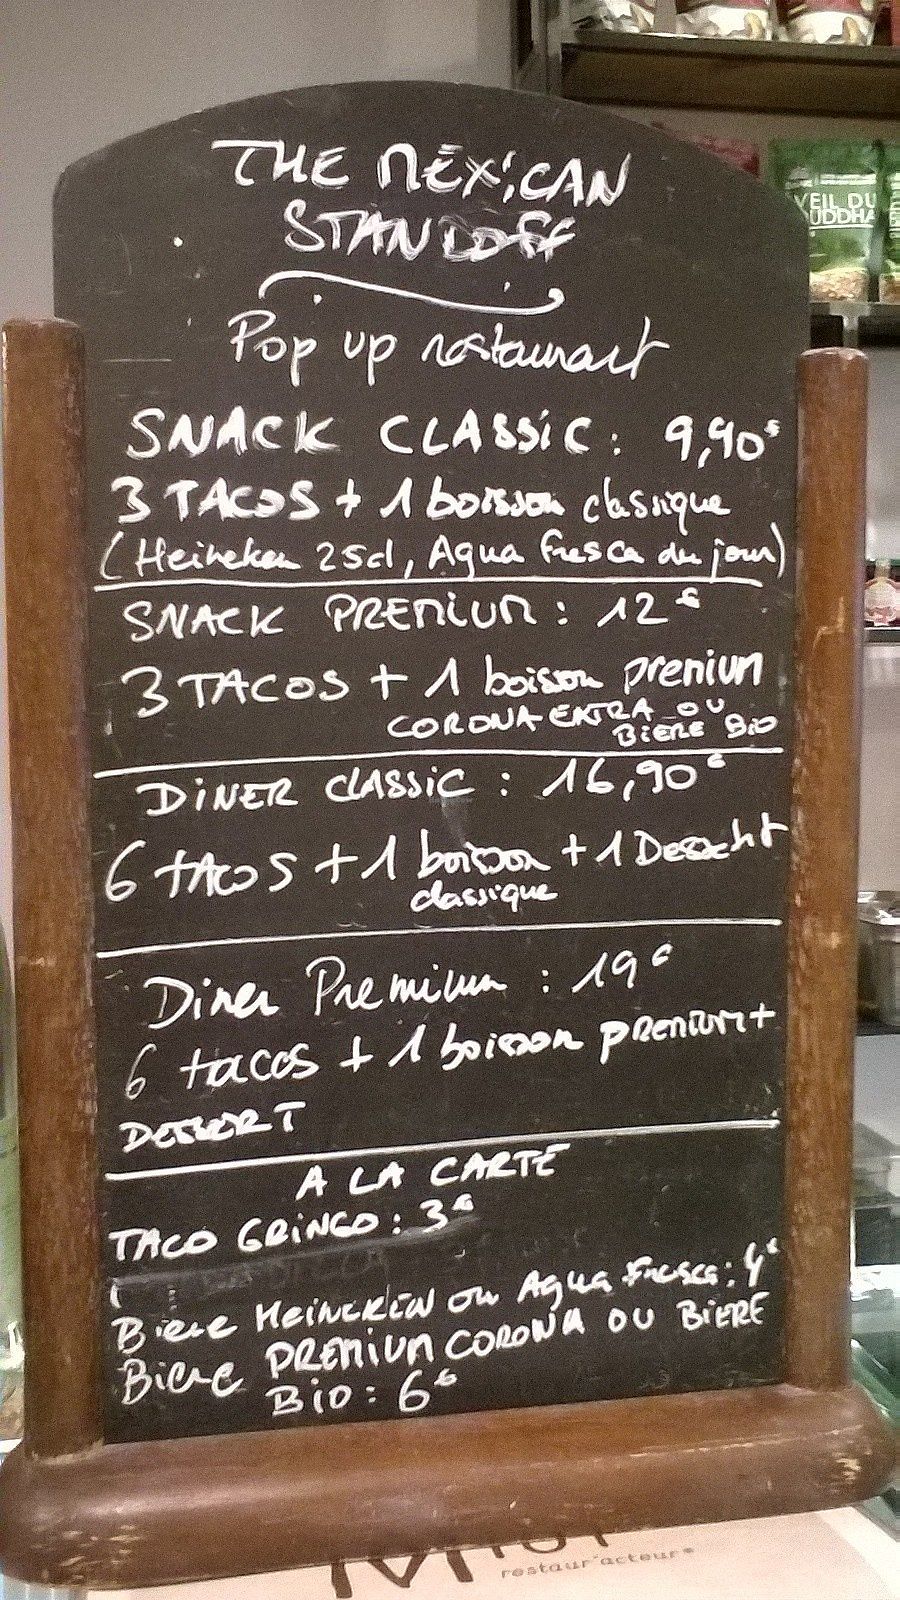 THE MEXiCAN
STANDOFF
Pop up restaurant
SNACK CLASSiC : 9,90€
3 TACOS + 1 boisson classique
(Heineken 25cl, Agua fresca du jour)
SNACK PREMiUM : 12€
3 TACOS + 1 boisson premium
CORONA EXTRA OU
BiERE BiO
DiNER CLASSiC : 16,90€
6 tACOS + 1 boisson + 1 Dessert
classique
Diner Premium : 19€
6 tacos + 1 boisson PREMIUM +
DESSERT
A LA CARTE
TACO GRiNGO : 3€
Biere HEiNEKEN ou Agua Fresca : 4€
Biere PREMiUM CORONA OU BiERE
BiO : 6€
VEIL DU
BUDDHA
restaur'acteur®